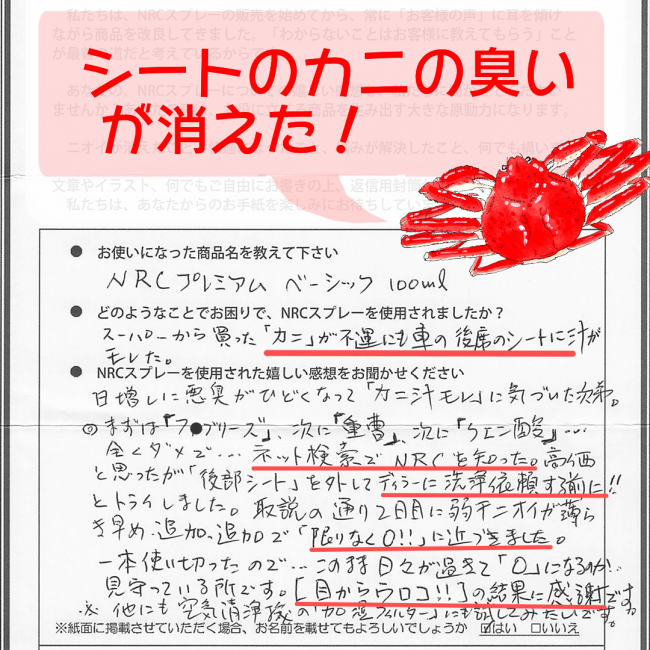 私たちは、NRCスプレーの販売を始めてから、常に「お客様の声」に耳を傾け
ながら商品を改良してきました。「わからないことはお客様に教えてもらう」こと
シートのカニの臭い
が消えた！
文章やイラスト、何でもご自由にお書きの上、返信用封筒
私たちは、あなたからのお手紙を楽しみにお待ちしてい
● お使いになった商品名を教えて下さい
NRCプレミアム ベーシック 100ml
● どのようなことでお困りで、NRCスプレーを使用されましたか？
スーパーから買った「カニ」が不運にも車の後席のシートに汁が
モレた。
● NRCスプレーを使用された嬉しい感想をお聞かせください
日増しに悪臭がひどくなって「カニ汁モレ」に気づいた次第。
まずは「フ●ブリーズ」、次に「重曹」、次に「クエン酸」…
全くダメで…ネット検索でNRCを知った。高価
と思ったが「後部シート」を外してディラーに洗浄依頼する前に!!
とトライしました。取説の通り2日目に弱干ニオイが薄ら
き早め、追加、追加で「限りなく0!!」に近づきました。
一本使い切ったので…この時日々が過ぎて「0」になるのか…
見守っている所です。[目からウロコ!!]の結果に感謝です。
※他にも空気清浄後の「加湿フィルター」にも試してみたいです。
※紙面に掲載させていただく場合、お名前を載せてもよろしいでしょうか ☑はい □いいえ